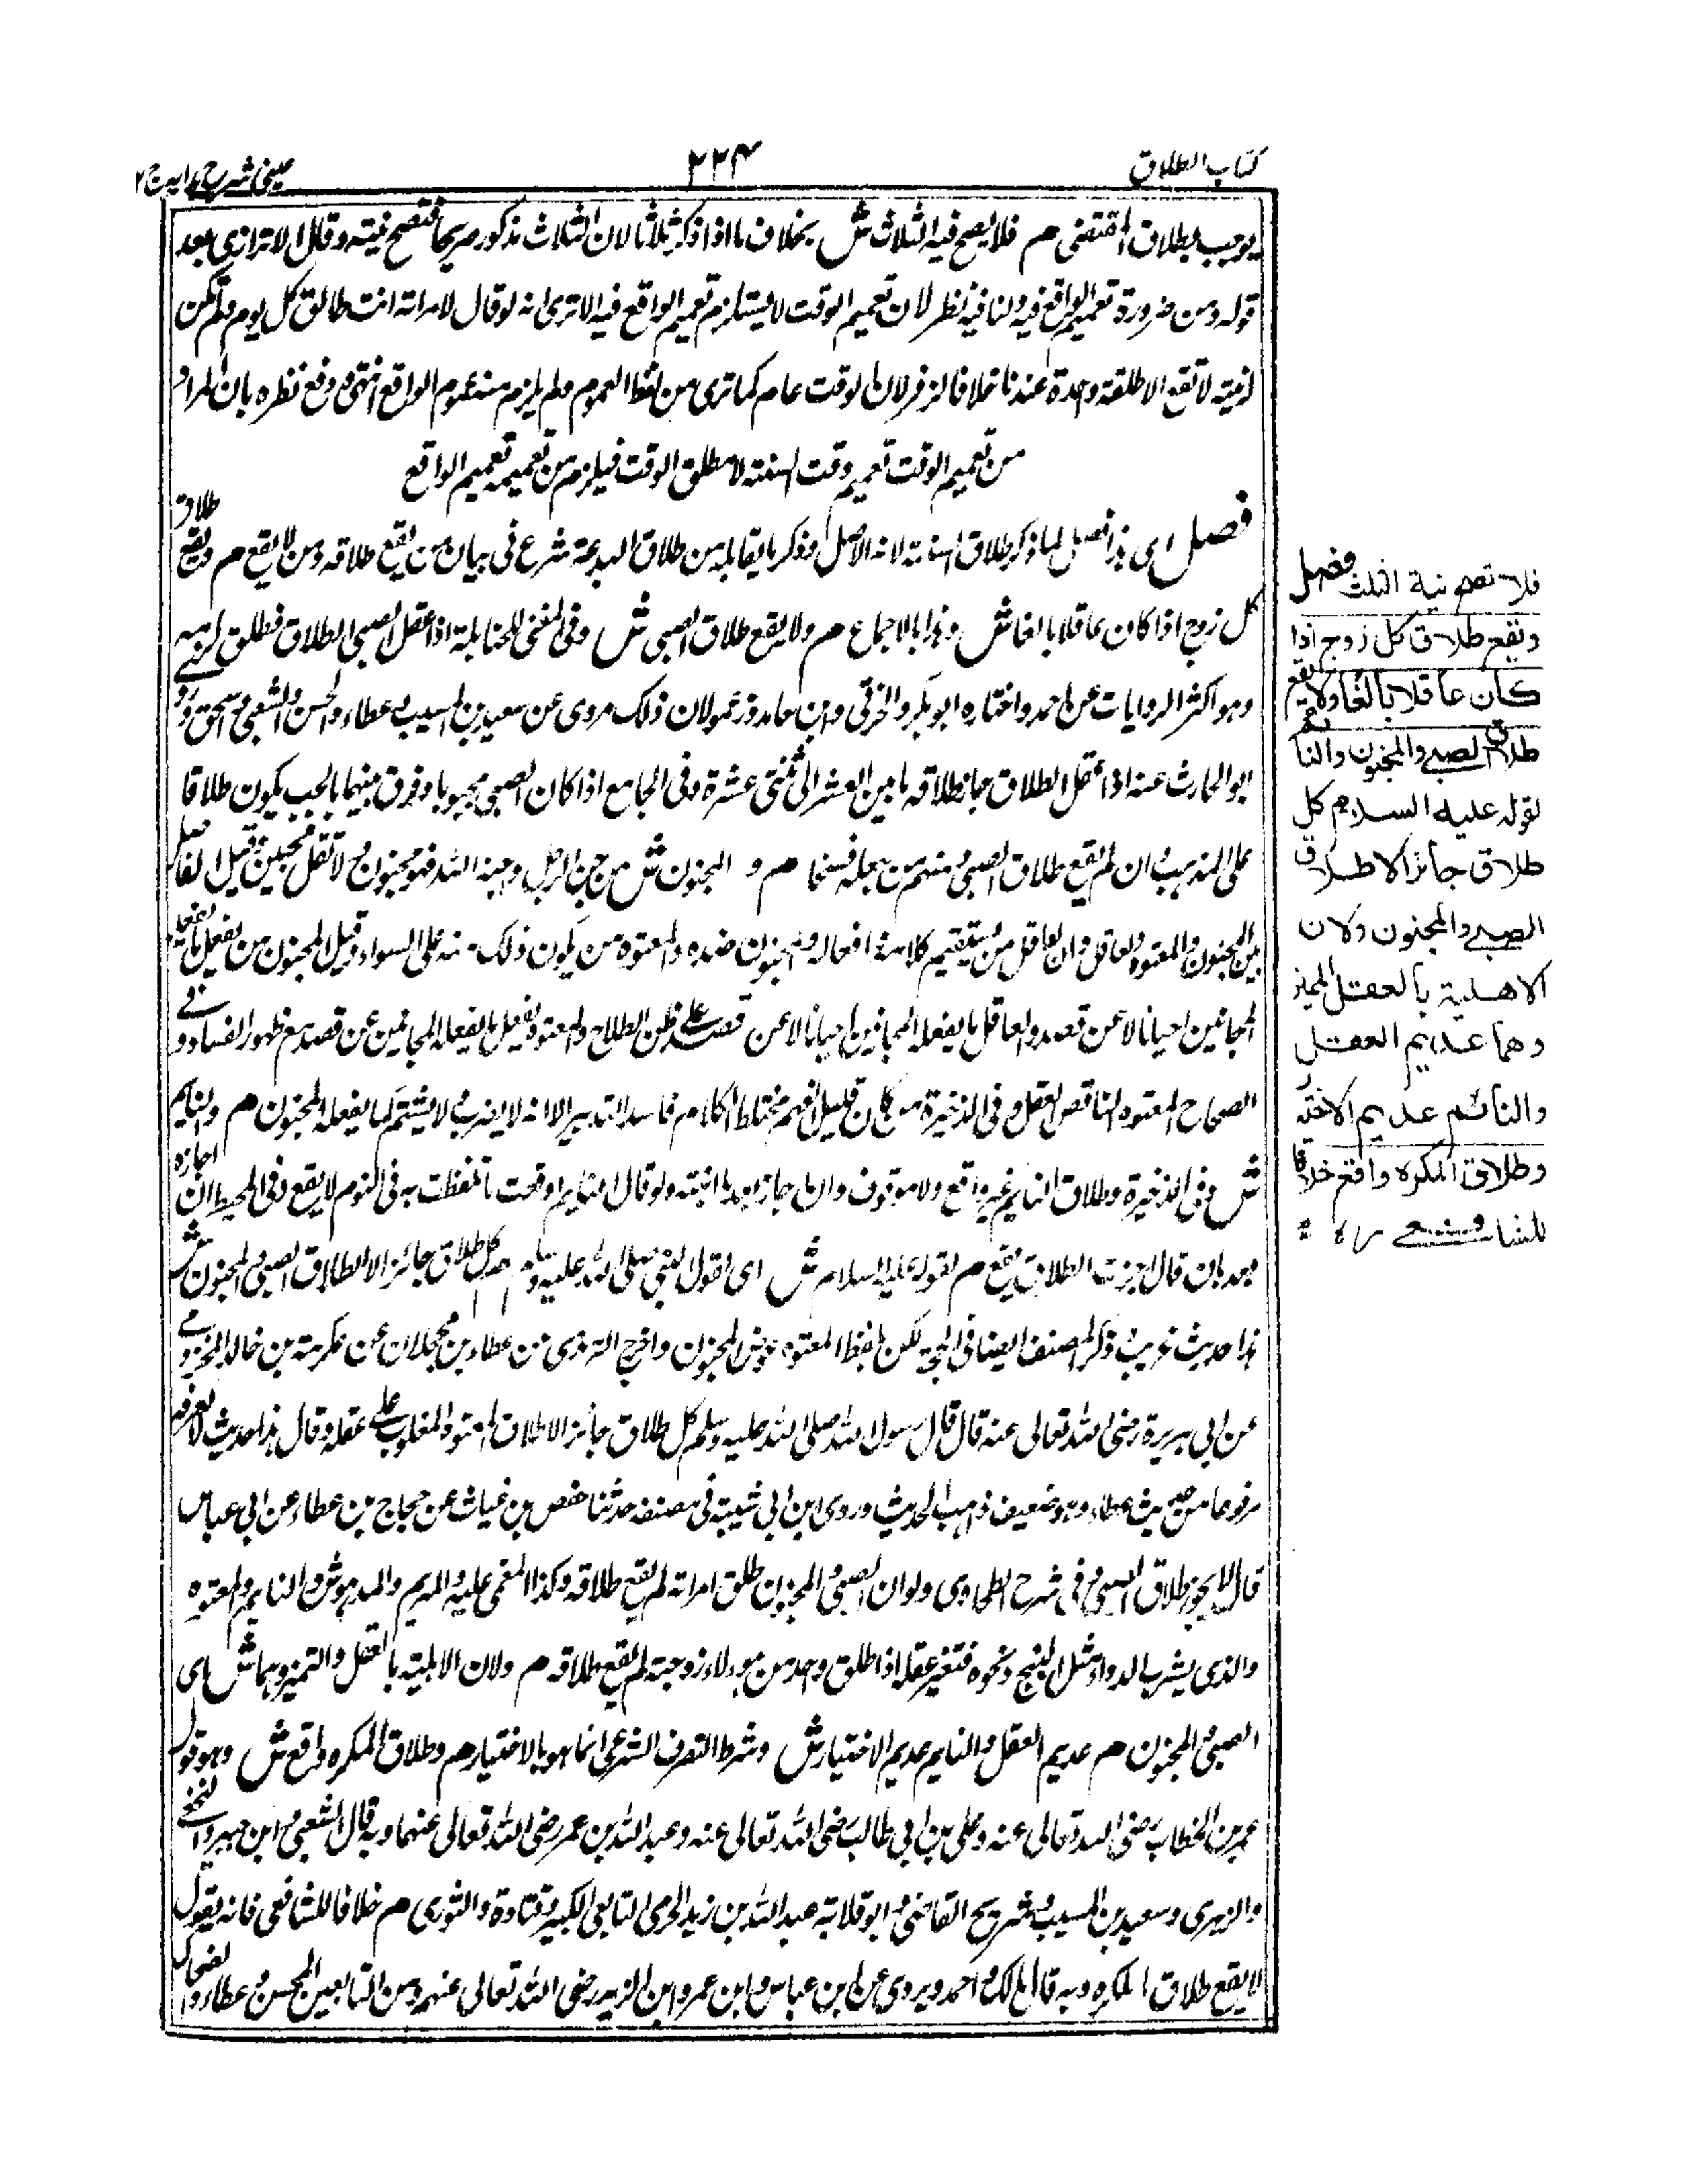 كتاب الطلاق
٢٢٤
عينى شرح هدايه ج ٢
يوجب بطلاق المقتضى م فلا يصح فيه الثلاث ش بخلاف ما اذا ذكر ثلاثا لان الثلاث مذكور صريحا فتصح نيته وقال الاترازى بعد
قوله ومن ضرورة تعميم الواقع فيه ولنا فيه نظر لان تعميم الوقت لا يستلزم تعميم الواقع فيه الا ترى انه لو قال لامراته انت طالق كل يوم ولم تكن
له نية لا تقع الا طلقة واحدة عندنا خلافا لزفر لان الوقت عام كما ترى من لفظ العموم ولم يلزم منه عموم الواقع انتهى ودفع نظره بان المراد
من تعميم الوقت تعميم وقت السنة لا مطلق الوقت فيلزم من تعميمه تعميم الواقع
فصل اى هذا فصل لما ذكر طلاق السنة لانه الاصل وذكر ما يقابله من طلاق البدعة شرع فى بيان من يقع طلاقه ومن لا يقع م ويقع طلاق
كل زوج اذا كان عاقلا بالغا ش وهذا بالاجماع م ولا يقع طلاق الصبى ش وفى المغنى للحنابلة اذا عقل الصبى الطلاق فطلق لزمه
وهو اكثر الروايات عن احمد واختاره ابو بكر والخرقى وابن حامد وزعموا ان ذلك مروى عن سعيد بن المسيب وعطاء والحسن والشعبى واسحق وروى
ابو الحارث عنه اذا عقل الطلاق جاز طلاقه ما بين العشر الى ثنتى عشرة وفى الجامع اذا كان الصبى مجبوبا وفرق بينهما بالجب يكون طلاقا
على المذهب وان لم يقع طلاق الصبى ومنهم من يجعله فسخا م و المجنون ش من جن الرجل وجنه الله فهو مجنون ولا تقل مجن قيل الفاصل
بين المجنون والمعتوه والعاقل ان العاقل من يستقيم كلامه وافعاله والمجنون ضده والمعتوه من يكون ذلك منه على السواء وقيل المجنون من يفعل ما يفعله
المجانين احيانا لا عن قصد والعاقل ما يفعله المجانين احيانا لا عن قصد على ظن الصلاح والمعتوه يفعل ما يفعله المجانين عن قصد مع ظهور الفساد وفى
الصحاح المعتوه الناقص العقل وفى الذخيرة من كان قليل الفهم مختلط الكلام فاسد التدبير الا انه لا يضرب ولا يشتم كما يفعله المجنون م والنايم
ش وفى الذخيرة وطلاق النايم غير واقع ولا موقوف وان اجازه بعد ما انتبه ولو قال النايم اوقعت ما تلفظت به فى النوم لا يقع وفى المحيط ان اجازه
بعد بان قال اجزت الطلاق يقع م لقوله عليه السلام ش اى لقول النبى صلى الله عليه وسلم م كل طلاق جائز الا طلاق الصبى والمجنون ش
هذا حديث غريب وذكر المصنف ايضا فى الحجر لكن بلفظ المعتوه عوض المجنون واخرج الترمذى عن عطاء بن عجلان عن عكرمة بن خالد المخزومى
عن ابى هريرة رضى الله تعالى عنه قال قال رسول الله صلى الله عليه وسلم كل طلاق جائز الا طلاق المعتوه المغلوب على عقله وقال هذا حديث لا نعرفه
مرفوعا من حديث عطاء وهو ضعيف ذاهب الحديث وروى ابن ابى شيبة فى مصنفه حدثنا حفص بن غياث عن حجاج بن عطاء عن ابى عباس
قال لا يجوز طلاق الصبى وفى شرح الطحاوى ولو ان الصبى والمجنون طلق امراته لم يقع طلاقه وكذا المغمى عليه والمبرسم والمدهوش والنايم والمعتوه
والذى يشرب الدواء مثل البنج ونحوه فتغير عقله اذا طلق واحد من هولاء زوجته لم يقع طلاقه م ولان الاهلية بالعقل والتميز وهما ش اى
الصبى والمجنون م عديم العقل والنايم عديم الاختيار ش وشرط التصرف الشرعى انما هو بالاختيار م وطلاق المكره واقع ش وهو قول
عمر بن الخطاب رضى الله تعالى عنه وعلى بن ابى طالب رضى الله تعالى عنه وعبد الله بن عمر رضى الله تعالى عنهما وبه قال الشعبى وابن جبير والنخعى
والزهرى وسعيد بن المسيب وشريح القاضى وابو قلابة عبد الله بن زيد الجرمى التابعى الكبير وقتادة والثورى م خلافا للشافعى فانه يقول
لا يقع طلاق المكره وبه قال مالك واحمد ويروى عن ابن عباس وابن عمر وابن الزبير رضى الله تعالى عنهم ومن التابعين الحسن وعطاء والضحاك
فلا تصح نية الثلث فصل
ويقع طلاق كل زوج اذا
كان عاقلا بالغا ولا يقع
طلاق الصبے والمجنون والنائم
لقوله عليه السلام كل
طلاق جائز الا طلاق
الصبے والمجنون ولان
الاهلية بالعقل المميز
وهما عديم العقل
والنائم عديم الاختيار
وطلاق المكره واقع خلافا
للشافعے رح